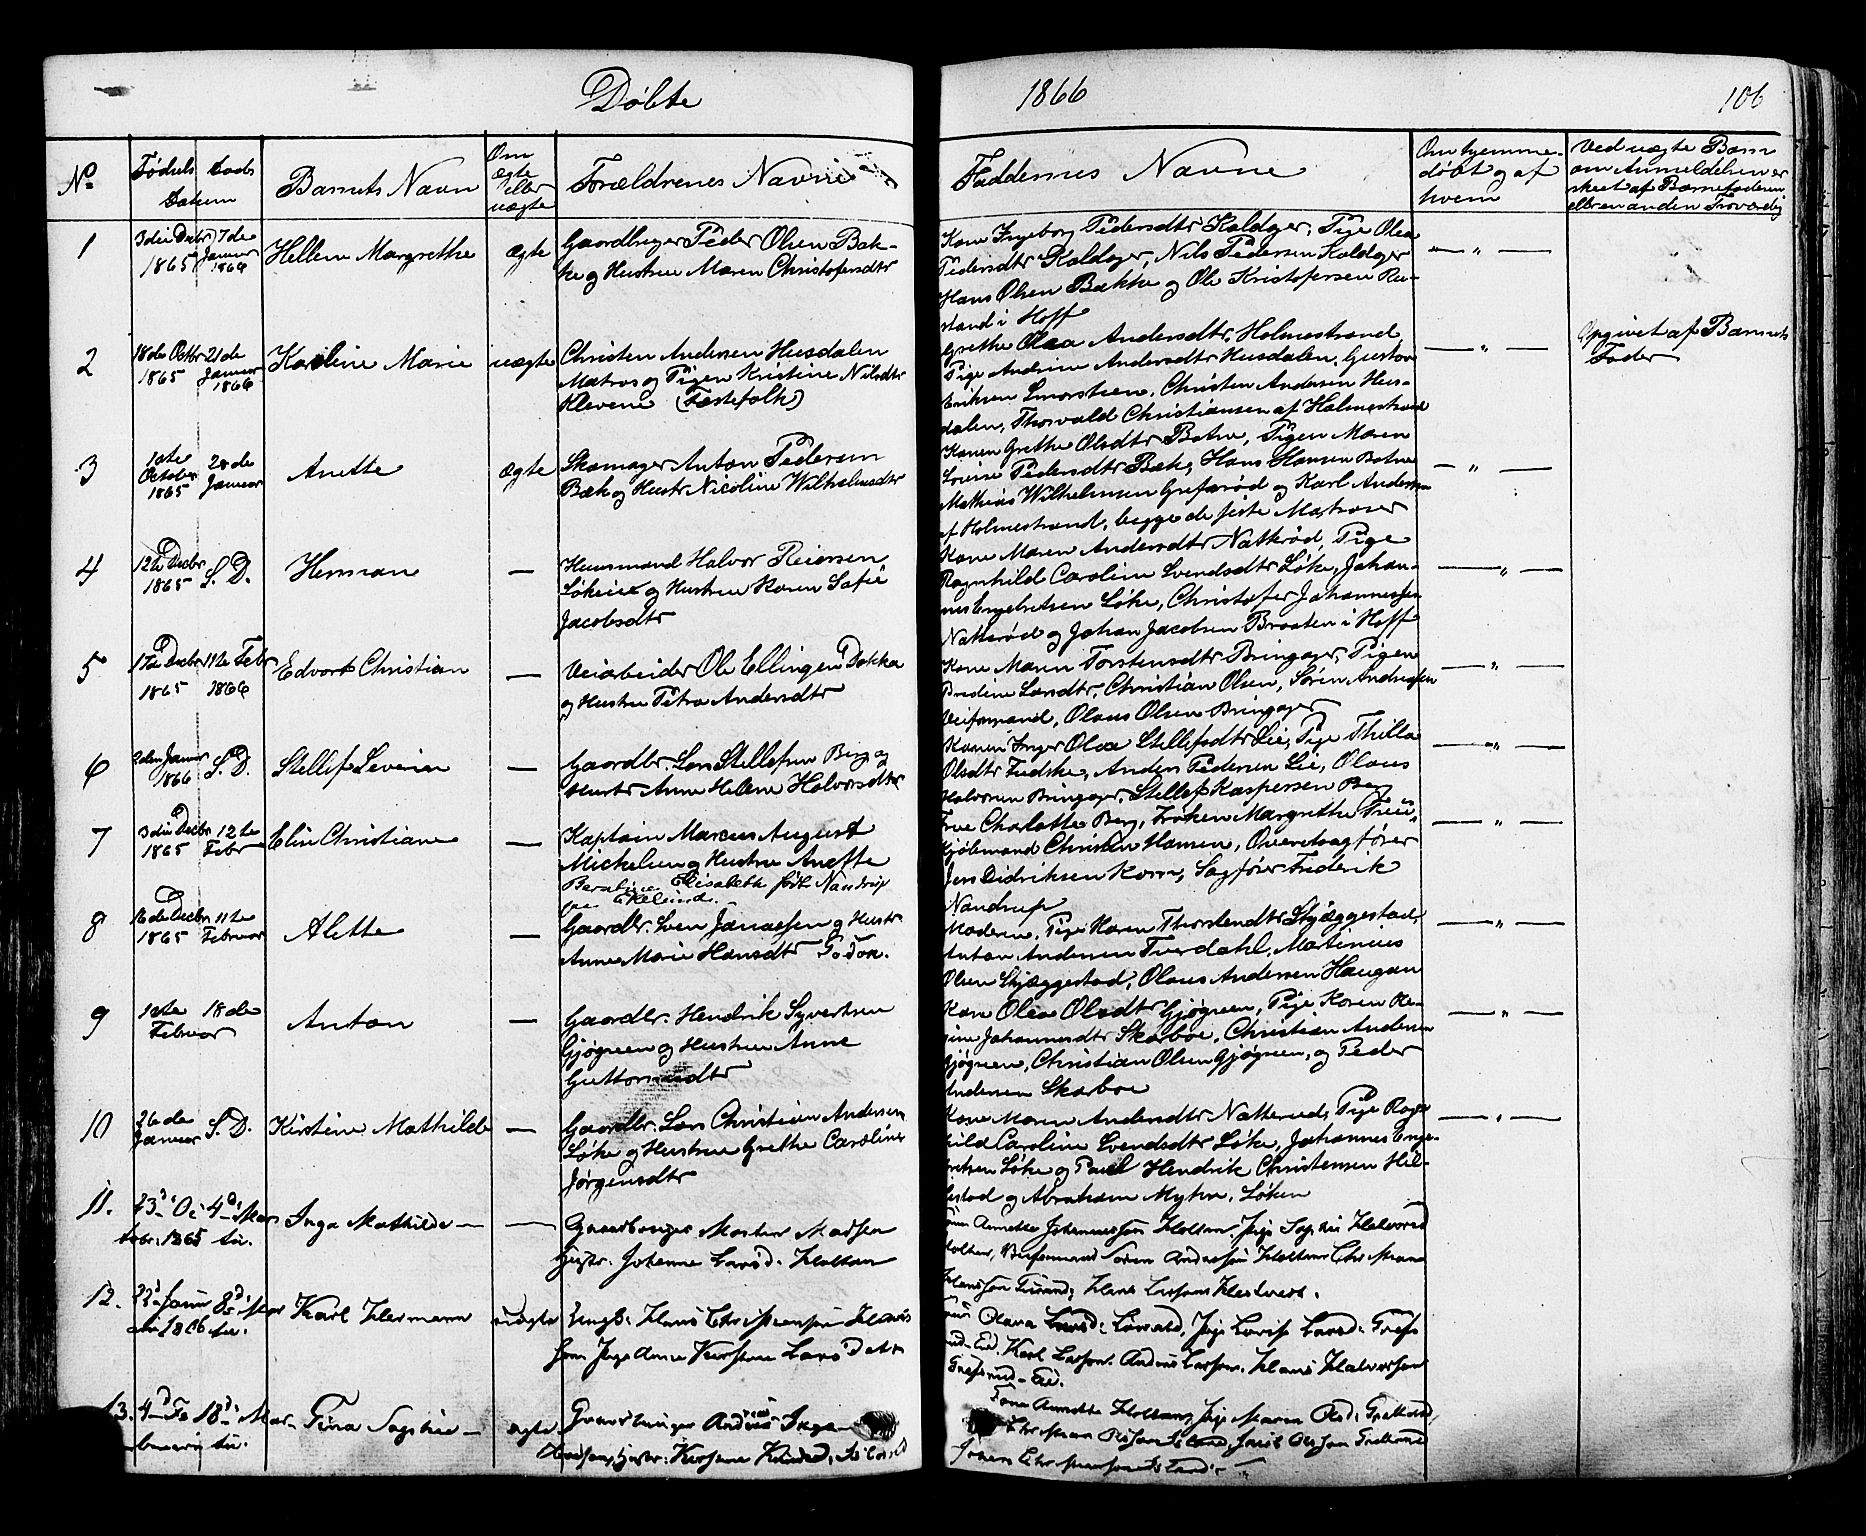 Døbte
1866
106
No
Fødsels Daabs
Datum
Barnets Navn
Om
ægte
eller
uægte
Forældrenes Navne
Faddernes Navne
Om hjemme-
døbt og af
hvem
Ved uægte Børn
om Anmeldelsen er
skeet af Barnefaderen
eller en anden Troværdig
1
3die Decbr 7de
1865 Januar
1866
Hellene Margrethe
ægte
Gaardbruger Peder Olsen Bak-
ke og Hustrue Maren Christofersdtr
Kone Ingeborg Pedersdtr Koldager, Pige Olea
Pedersdtr Koldager, Nils Pedersen Koldager
Hans Olsen Bakke og Ole Kristofersen Ru-
stand i Hoff
2
18de Octbr 21de
1865 Januar
1866
Karoline Marie
uægte
Christen Andersen Husdalen
Matros og Pigen Kristine Nilsdtr
Klevene (Fæstefolk)
Grethe Olea Andersdtr, Holmestrand
Pige Andrine Andersdtr Husdalen, Gustav
Eriksen Smørsteen, Christen Andersen Hus-
dalen, Thorvald Christiansen af Holmestrand
Opgivet af Barnets
Fader
3
1ste 28de
October Januar
1865
Anette
ægte
Skomager Anton Pedersen
Bæk og Hustr Nicoline Wilhelmsdtr
Konen Grethe Olsdtr Botne, Pigen Maren
Lovise Pedersdtr Bæk, Hans Hansen Botne
Mathias Wilhelmsen Grefsrød og Karl Andersen
af Holmestrand, begge de siste Matroser
4
12te Decbr S. D.
1865
Herman
—
Huusmand Halvor Reiersen
Løkeie og Hustrue Karen Sofie
Jacobsdtr
Kone Maren Andersdtr Natkrød, Pige
Ragnhild Caroline Svendsdtr Løke, Johan-
nes Engebretsen Løke, Christofer Johannessen
Natterød og Johan Jacobsen Braaten i Hoff
5
17de Decbr 11te Febr
1865 1866
Edvart Christian
—
Veiarbeider Ole Ellingsen Dokka
og Hustrue Petra Andersdtr
Kone Maren Torstensdtr Bringager, Pigen
Christian Olsen, Søren Andreasen
Olaus Olsen Bringager
6
2den Januar S. D.
1866
Stellef Severin
—
Gaardbr. Lars Stellefsen Berg og
Hustr Anne Helene Halvorsdtr
Konen Inger Olea Stellefsdtr Lie, Pige Thilla
Olsdtr Fudske, Anders Pedersen Lie, Olaus
Halvorsen Bringager, Stellef Kaspersen Berg
7
3die Decbr 12te
1865 Febr
Elise Christiane
—
Kaptain Marcus August
Michelsen og Hustrue Anette
Elisabeth født Nandrup
paa Ekelund.
Frue Charlotte Berg, Frøken Margrethe
Kjøbmand Christen Hansen, Overretssagfører
Jens Didriksen Korn, Sagfører Frederik
Nandrup
8
16de Decbr 11te
1865 Februar
Alette
—
Gaardbr. Sven Jonassen og Hustr
Anne Marie Hansdtr
Moderen, Pige Maren Thorstendtr Skjæggestad,
Anton Andersen Tverdahl, Martinius
Olsen Skjæggestad, Olaus Andersen Haugan
9
1ste 18de
Februar
Anton
—
Gaardbr. Hendrik Syvertsen
Gjøgreen og Hustrue Anne
Guttormsdtr
Kone Olea Olsdtr Gjøgreen, Pige Karen Re-
gine Johannesdtr Skarboe, Christian Andersen
Gjøgreen, Christian Olsen Gjøgreen, og Peder
Andersen Skarboe
10
26de S. D.
Januar
Kirstine Mathilde
—
Gaardbr. Lars Christian Andersen
Løke og Hustrue Grethe Caroline
Jørgensdtr
Kone Maren Andersdtr Natterud, Pige Ragn
hild Caroline Svendsdtr Løke, Johannes Enge-
bretsen Løke og Paul Hendrik Christensen Hil-
lestad og Abraham Myhre, Løken
11.
23d Oc 4d Mar
tobr. 1865 ts.
Inga Mathilde
—
Gaardbruger Morten Madsen
Hustr. Johanne Larsd. Holtan
Kone Annette Johannessen Holtan, Pige Sophie Halvorsd
Holtan, Søren Andersen Holtan Christian
Hans Larsen
12.
22d Janu 8d Mar
ari 1866 ts.
Karl Hermann
uægte
Ungk. Hans Christiansen
Pige Anne Kirstine Larsdatr
Olava Larsd. Pige Lovise Larsd. Grefs
rud Eie. Karl Larsen. Andreas Larsen. Hans Halvorsen
Grefsrud Eie.
13.
4d Fe 18d Mar
bruari ts.
Tina Sophie
ægte
Gaardbruger Andreas Inge
Hustr. Kirstine
Kone Annette Holtan, Pige Maren Olsd.
Christian Olsen